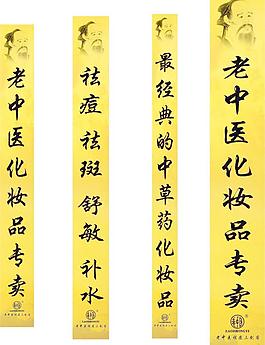 老中医化妆品专卖
LAOZHONGYI
祛痘 祛斑 舒敏 补水
最经典的中草药化妆品
老中医化妆品专卖
LAOZHONGYI